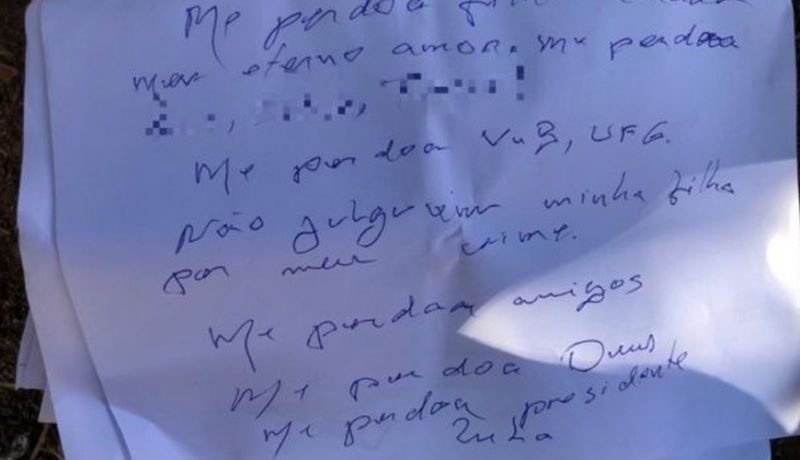 Me perdoa
meu eterno amor. me perdoa
Me perdoa UnB, UFG.
Não julguem minha filha
por meu crime.
Me perdoa amigos
Me perdoa Deus
me perdoa presidente
Lula